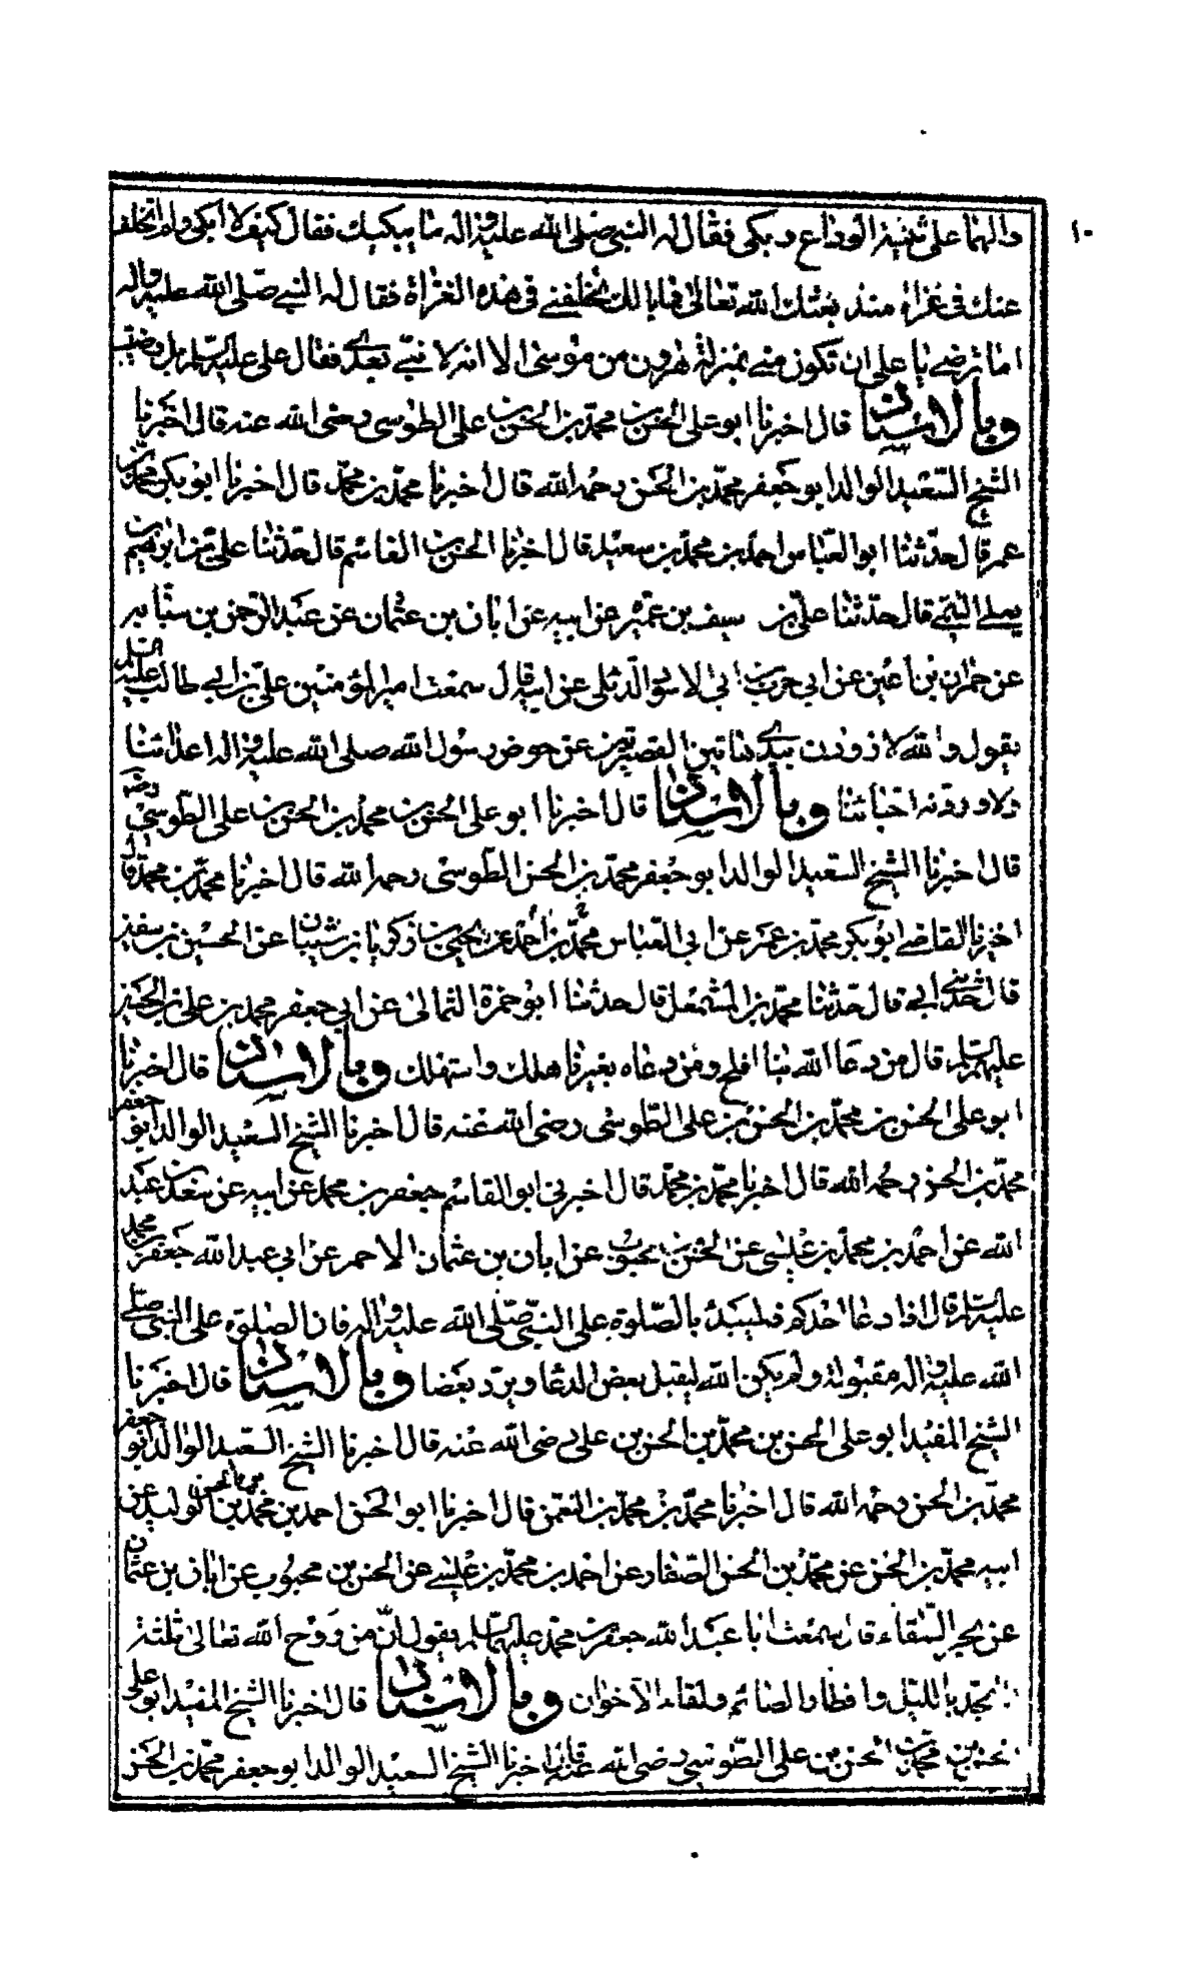 ١٠
واله ما على ثنية الوداع وبكى فقال له النبي صلى الله عليه واله ما يبكيك فقال كيف لا ابكى ولم اتخلف
عنك في غزاة منذ بعثك الله تعالى فما بالك تخلفني في هذه الغزاة فقال له النبي صلى الله عليه واله
اما ترضى يا على ان تكون منى بمنزلة هرون من موسى الا انه لا نبي بعدى فقال على عليه السلم بل رضيت
وبالاسناد قال اخبرنا ابو على الحسن بن محمد بن الحسن بن على الطوسى رضى الله عنه قال اخبرنا
الشيخ السعيد الوالد ابو جعفر محمد بن الحسن رحمه الله قال اخبرنا محمد بن محمد قال اخبرنا ابو بكر محمد بن
عمر قال حدثنا ابو العباس احمد بن محمد بن سعيد قال اخبرنا الحسن بن القاسم قال حدثنا على بن ابرهيم بن
يعلى التيمى قال حدثنا على بن سيف بن عميره عن ابيه عن ابان بن عثمان عن عبد الرحمن بن سيابه
عن حمران بن اعين عن ابى حرب بن ابى الاسود الدئلى عن ابيه قال سمعت امير المؤمنين على بن ابى طالب عليه السلم
يقول والله لاذودن بيدى هاتين القصيرتين عن حوض رسول الله صلى الله عليه واله اعدائنا
ولاوردنه احبائنا وبالاسناد قال اخبرنا ابو على الحسن بن محمد بن الحسن بن على الطوسى رحمه الله
قال اخبرنا الشيخ السعيد الوالد ابو جعفر محمد بن الحسن الطوسى رحمه الله قال اخبرنا محمد بن محمد قال
اخبرنا القاضى ابو بكر محمد بن عمر عن ابى العباس احمد بن محمد عن يحيى بن زكريا بن شيبان عن الحسين بن سفين
قال حدثنى ابى قال حدثنا محمد بن المشمعل قال حدثنا ابو حمزة الثمالى عن ابى جعفر محمد بن على بن الحسين
عليهم السلم قال من دعا الله بنا افلح ومن دعاه بغيرنا هلك واستهلك وبالاسناد قال اخبرنا
ابو على الحسن بن محمد بن الحسن بن على الطوسى رضى الله عنه قال اخبرنا الشيخ السعيد الوالد ابو جعفر
محمد بن الحسن رحمه الله قال اخبرنا محمد بن محمد قال اخبرنى ابو القاسم جعفر بن محمد عن ابيه عن سعد بن عبد
الله عن احمد بن محمد بن عيسى عن الحسن بن محبوب عن ابان بن عثمان الاحمر عن ابى عبد الله جعفر بن محمد
عليه السلم قال اذا دعا احدكم فليبدء بالصلوة على النبى صلى الله عليه واله فان الصلوة على النبى صلى
الله عليه واله مقبولة ولم يكن الله ليقبل بعض الدعا ويرد بعضا وبالاسناد قال اخبرنا
الشيخ المفيد ابو على الحسن بن محمد بن الحسن بن على رضى الله عنه قال اخبرنا الشيخ السعيد الوالد ابو جعفر
محمد بن الحسن رحمه الله قال اخبرنا محمد بن محمد بن النعمن قال اخبرنا ابو الحسن احمد بن محمد بن الحسن بن الوليد عن
ابيه محمد بن الحسن عن محمد بن الحسن الصفار عن احمد بن محمد بن عيسى عن الحسن بن محبوب عن ابان بن عثمان
عن بحر السقاء قال سمعت ابا عبد الله جعفر بن محمد عليهما السلم يقول ان من روح الله تعالى ثلثة
التهجد بالليل وافطار الصائم ولقاء الاخوان وبالاسناد قال اخبرنا الشيخ المفيد ابو على
الحسن بن محمد بن الحسن بن على الطوسى رضى الله عنه قال اخبرنا الشيخ السعيد الوالد ابو جعفر محمد بن الحسن